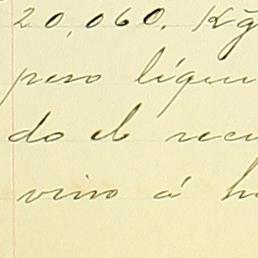 20,060. Kg
peso líqui
do el recu
vino á ha